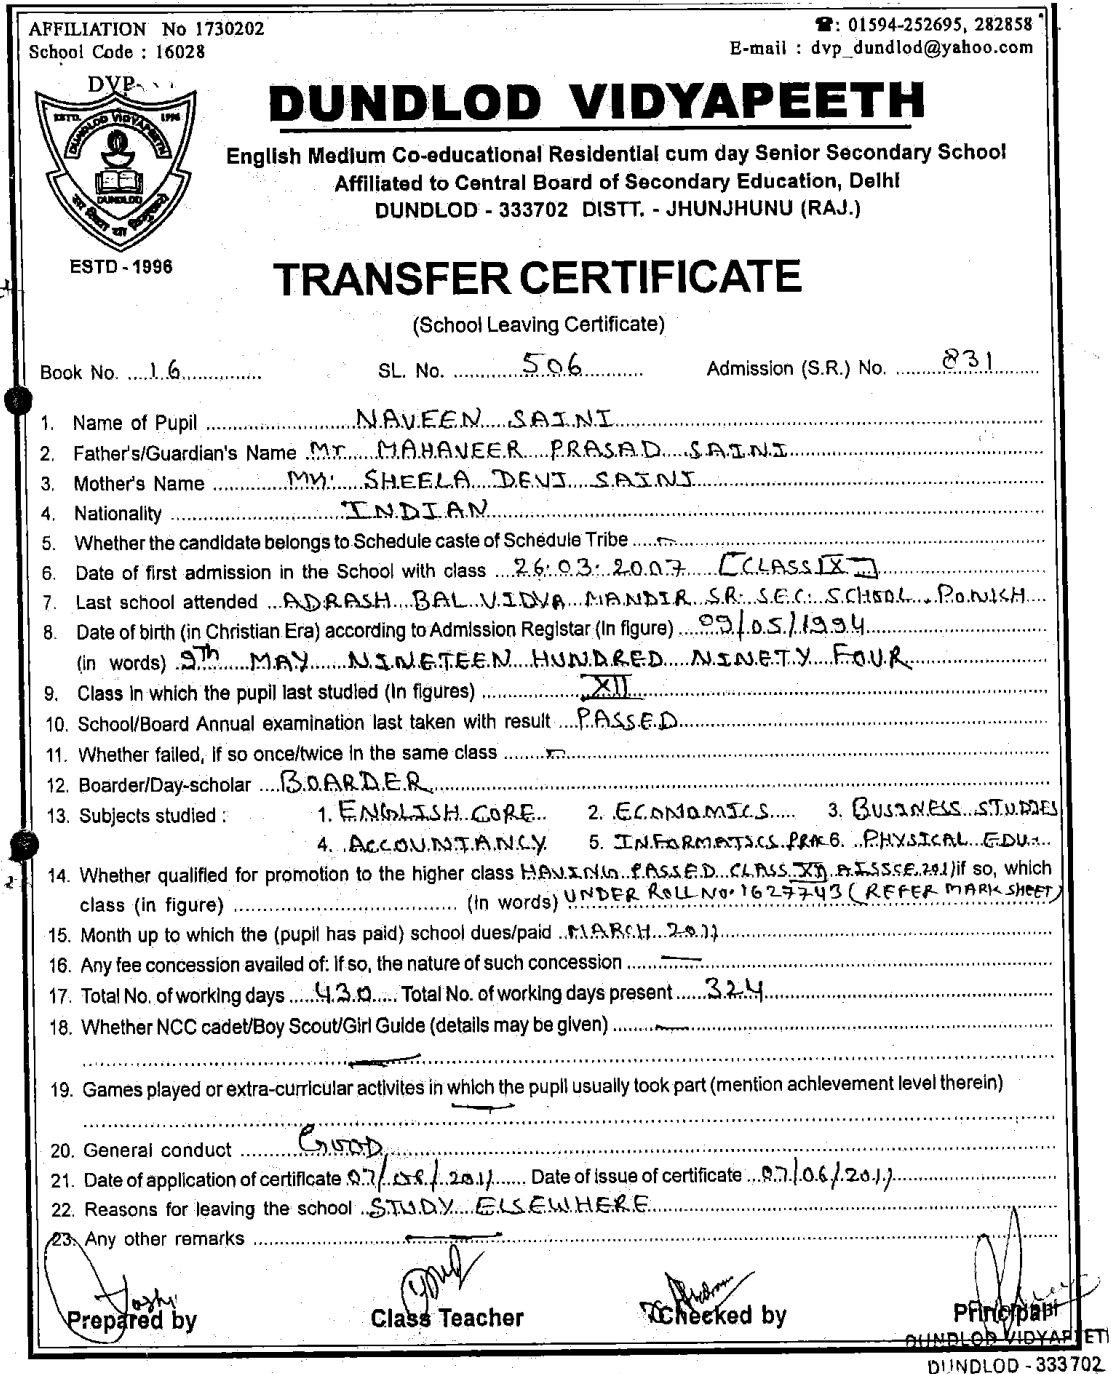 AFFILIATION No 1730202
☎: 01594-252695, 282858
School Code : 16028
E-mail : dvp_dundlod@yahoo.com
DVP
ESTD. DUNDLOD VIDYAPEETH 1996
DUNDLOD
सा विद्या या विमुक्तये
ESTD - 1996
DUNDLOD VIDYAPEETH
English Medium Co-educational Residential cum day Senior Secondary School
Affiliated to Central Board of Secondary Education, Delhi
DUNDLOD - 333702 DISTT. - JHUNJHUNU (RAJ.)
TRANSFER CERTIFICATE
(School Leaving Certificate)
Book No. ....16............... SL. No. ............506............ Admission (S.R.) No. .........831.........
1. Name of Pupil ............ NAVEEN SAINI ............
2. Father's/Guardian's Name .Mr. MAHAVEER PRASAD SAINI............
3. Mother's Name ............ Mrs. SHEELA DEVI SAINI............
4. Nationality ............ INDIAN............
5. Whether the candidate belongs to Schedule caste of Schedule Tribe ....—............
6. Date of first admission in the School with class ...26.03.2007 [CLASS IX]
7. Last school attended ...ADRASH BAL VIDYA MANDIR SR. SEC. SCHOOL, PONKH
8. Date of birth (in Christian Era) according to Admission Registar (In figure) ....09/05/1994............
(in words) 9th MAY NINETEEN HUNDRED NINETY FOUR............
9. Class in which the pupil last studied (In figures) ............XII............
10. School/Board Annual examination last taken with result ...PASSED............
11. Whether failed, if so once/twice in the same class ......—............
12. Boarder/Day-scholar ....BOARDER............
13. Subjects studied : 1. ENGLISH CORE.. 2. ECONOMICS.... 3. BUSINESS STUDIES
4. ACCOUNTANCY 5. INFORMATICS PRAC 6. PHYSICAL EDU...
14. Whether qualified for promotion to the higher class HAVING PASSED CLASS XII AISSCE 2011 if so, which
class (in figure) ............ (in words) UNDER ROLL NO. 1627743 (REFER MARK SHEET)
15. Month up to which the (pupil has paid) school dues/paid ..MARCH 2011............
16. Any fee concession availed of: If so, the nature of such concession ......—............
17. Total No. of working days .....430..... Total No. of working days present ......324............
18. Whether NCC cadet/Boy Scout/Girl Guide (details may be given) ........—............
............—............
19. Games played or extra-curricular activites in which the pupil usually took part (mention achievement level therein)
............—............
20. General conduct ............GOOD............
21. Date of application of certificate 07/06/2011...... Date of issue of certificate ...07/06/2011............
22. Reasons for leaving the school ..STUDY ELSEWHERE............
23. Any other remarks ............—............
Joshi
Prepared by Class Teacher Checked by Principal
DUNDLOD VIDYAPEETH
DUNDLOD - 333702